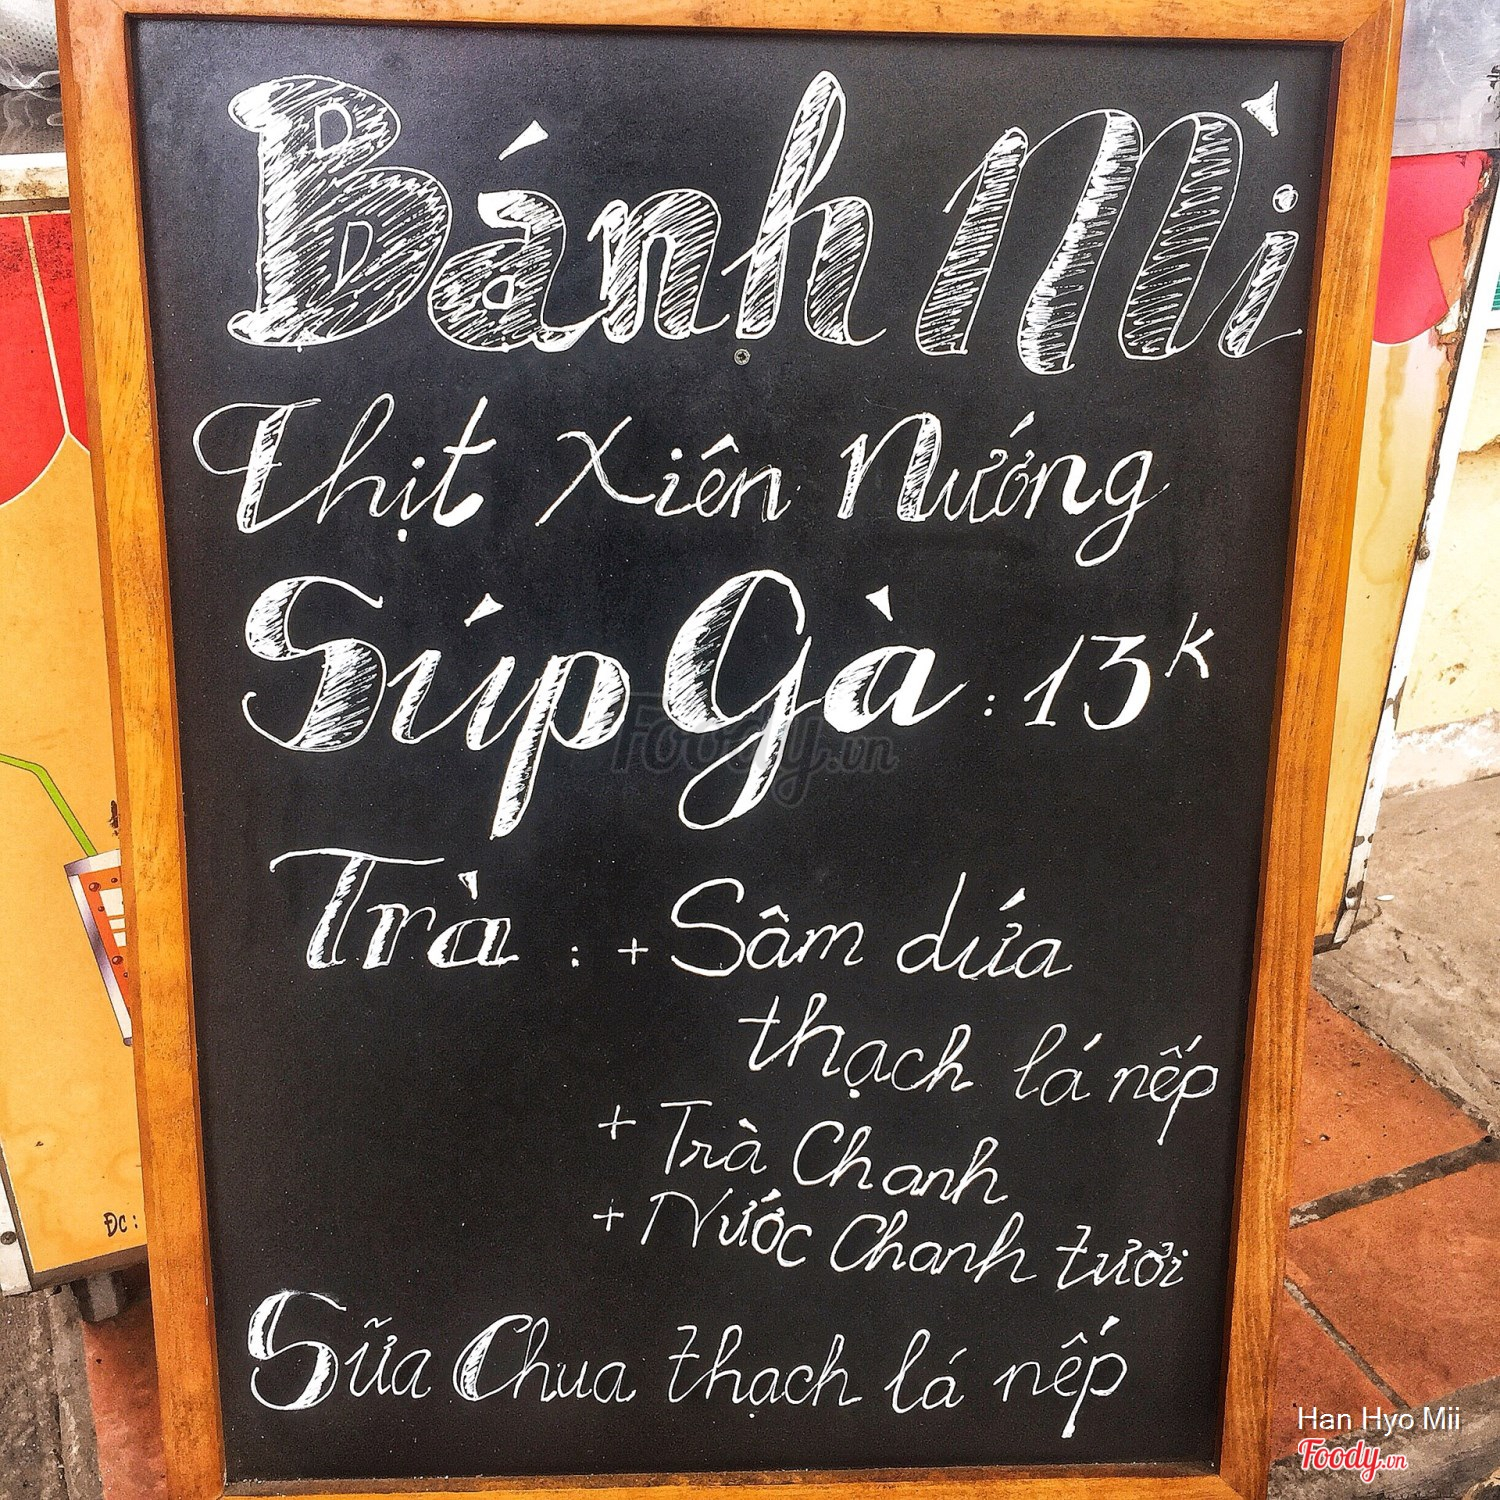 Bánh Mì
Thịt Xiên Nướng
Súp Gà : 13K
Trà : + Sâm dứa
thạch lá nếp
+ Trà Chanh
+ Nước Chanh tươi
Sữa Chua thạch lá nếp
Foody.vn
Đc :
Han Hyo Mii
Foody.vn